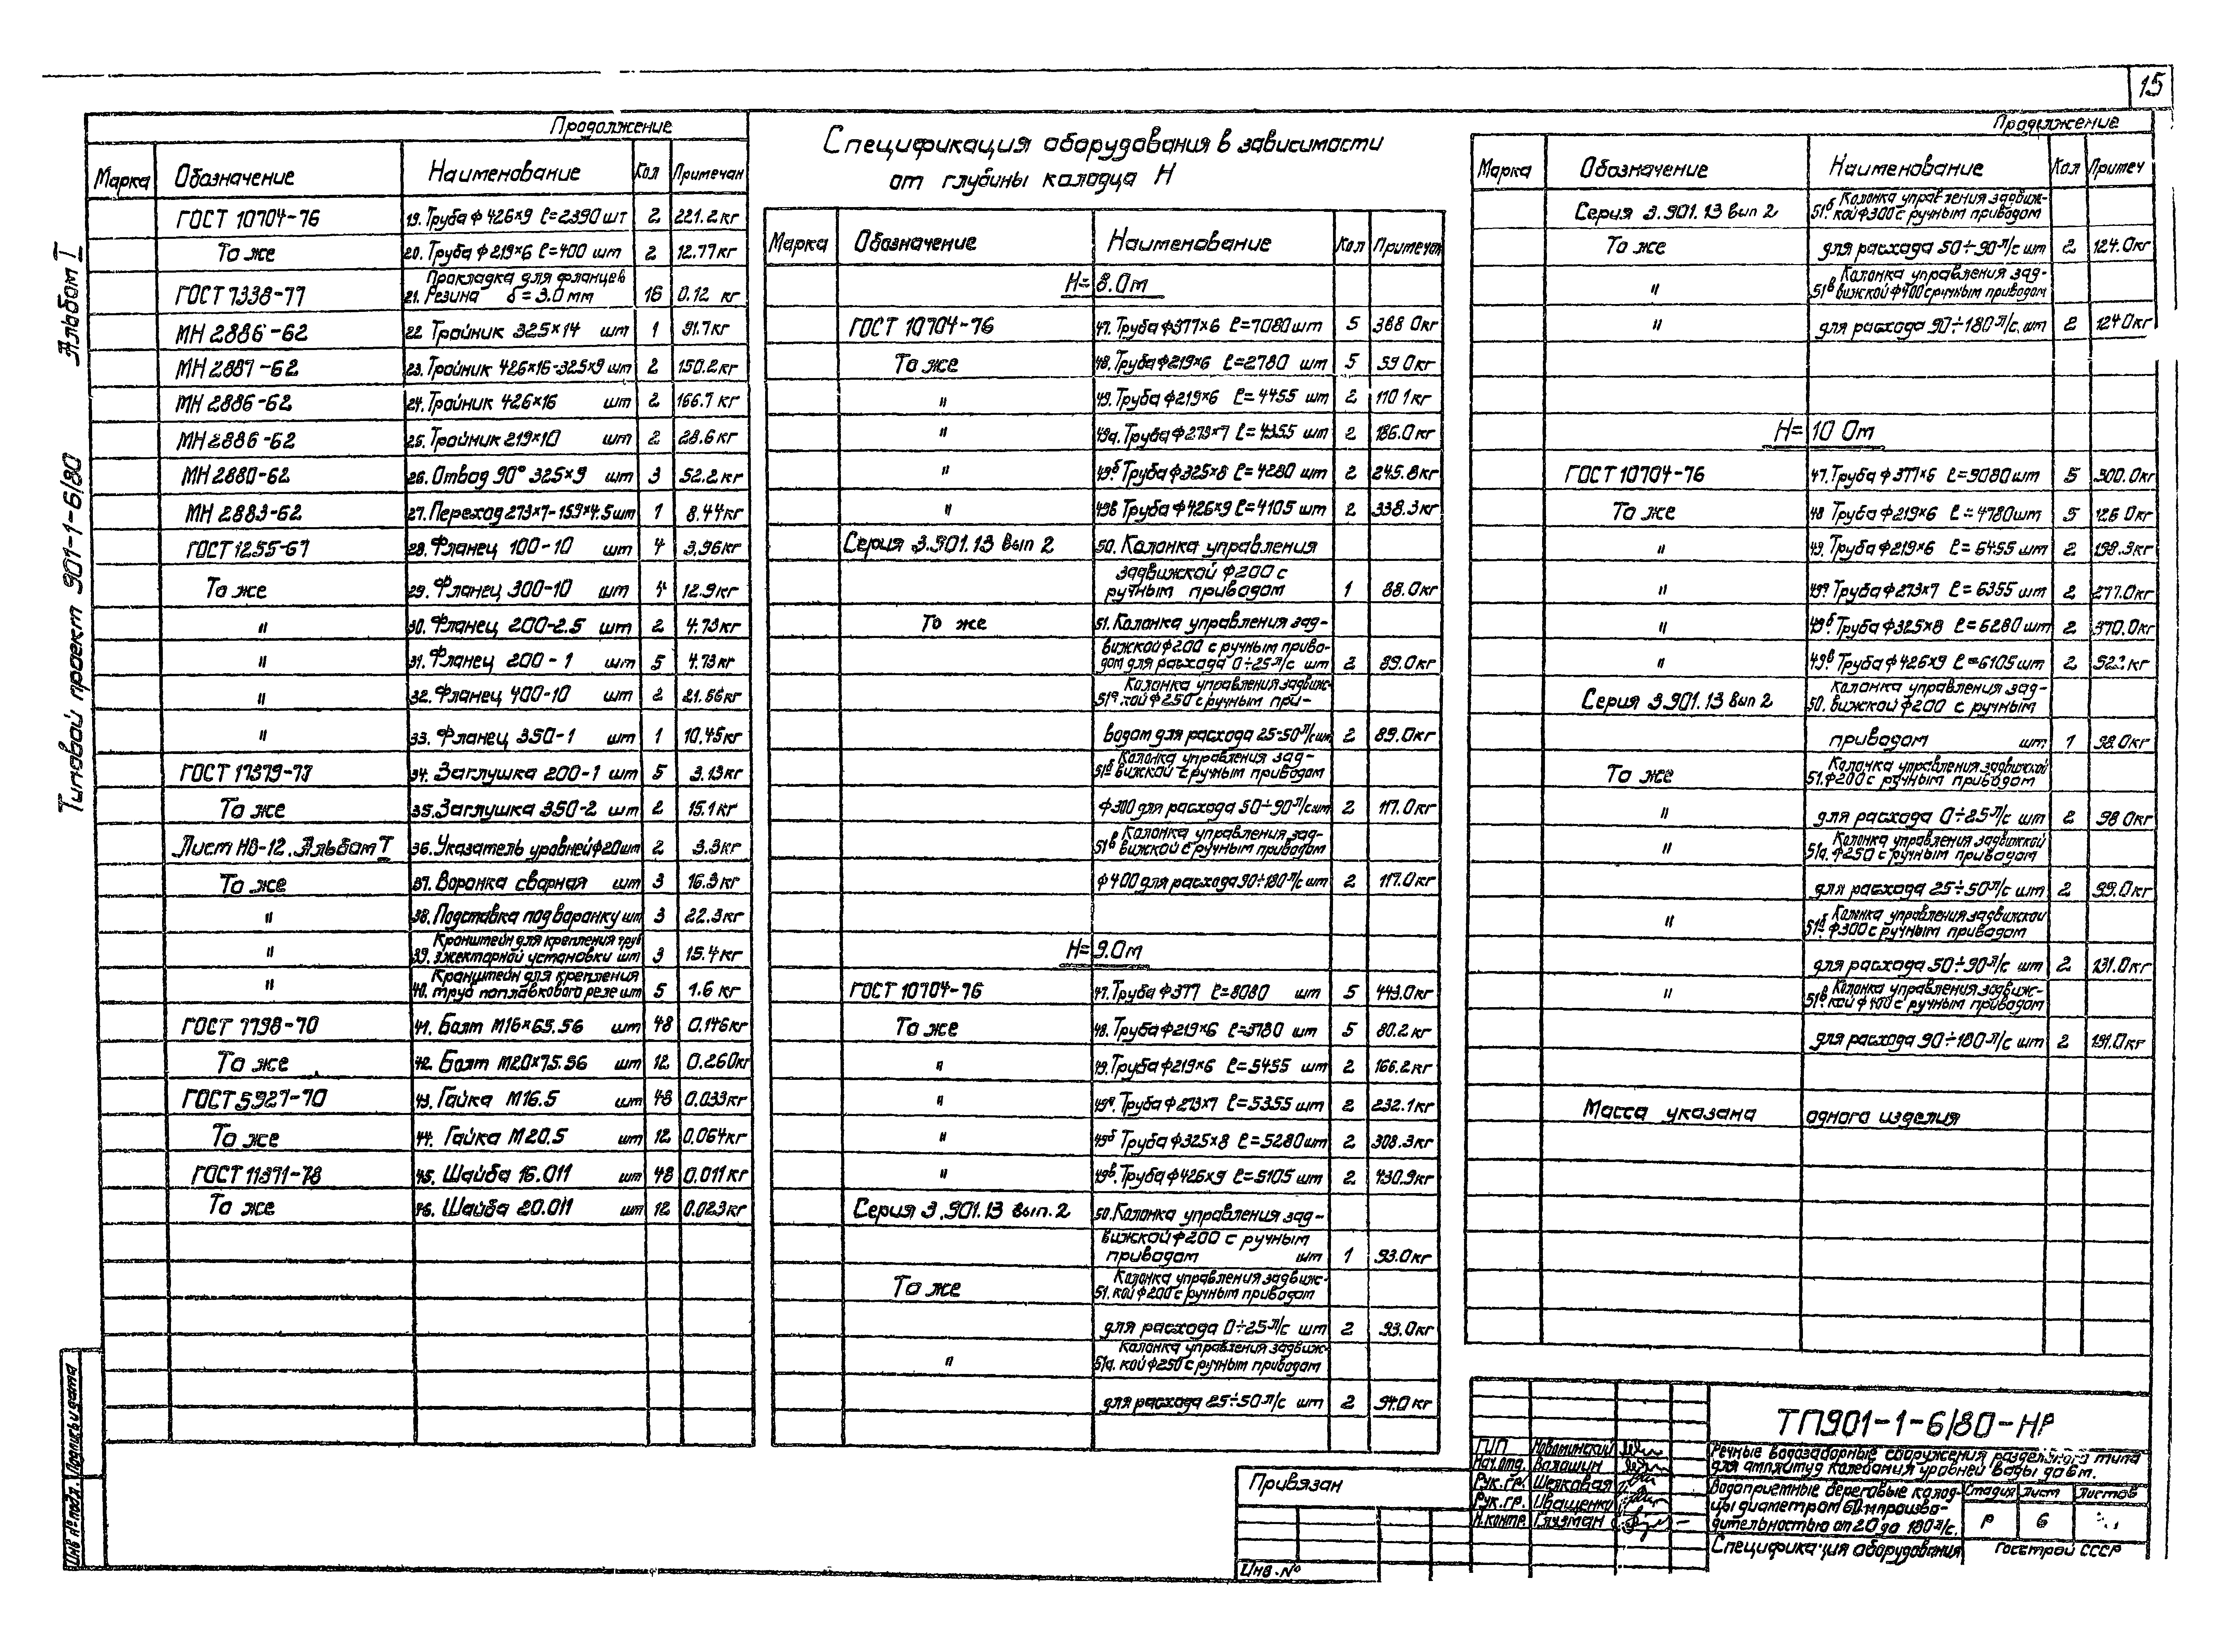 15
Альбом I
Типовой проект 901-1-6/80
Продолжение
Марка Обозначение Наименование Кол Примечан
ГОСТ 10704-76 19. Труба ф 426×9 ℓ=2390 шт 2 221.2 кг
То же 20. Труба ф 219×6 ℓ=400 шт 2 12.77кг
Прокладка для фланцев
ГОСТ 7338-77 21. Резина δ=3.0 мм 16 0.12 кг
МН 2886-62 22 Тройник 325×14 шт 1 91.7кг
МН 2887-62 23. Тройник 426×16-325×9 шт 2 150.2кг
МН 2886-62 24. Тройник 426×16 шт 2 166.7 кг
МН 2886-62 25. Тройник 219×10 шт 2 28.6 кг
МН 2880-62 26. Отвод 90° 325×9 шт 3 52.2 кг
МН 2883-62 27. Переход 273×7-159×4.5 шт 1 8.44кг
ГОСТ 1255-67 28. Фланец 100-10 шт 4 3.96кг
То же 29. Фланец 300-10 шт 4 12.9кг
" 30. Фланец 200-2.5 шт 2 4.73кг
" 31. Фланец 200-1 шт 5 4.73кг
" 32. Фланец 400-10 шт 2 21.56кг
" 33. Фланец 350-1 шт 1 10.45кг
ГОСТ 17379-77 34. Заглушка 200-1 шт 5 3.13кг
То же 35. Заглушка 350-2 шт 2 15.1кг
Лист НВ-12. Альбом I 36. Указатель уровней ф20шт 2 3.3кг
То же 37. Воронка сварная шт 3 16.3 кг
" 38. Подставка под воронку шт 3 22.3кг
Кронштейн для крепления труб
" 39. эжекторной установки шт 3 15.4кг
Кронштейн для крепления
" 40. труб поплавкового реле шт 5 1.6 кг
ГОСТ 7798-70 41. Болт М16×65.56 шт 48 0.146кг
То же 42. Болт М20×75.56 шт 12 0.260кг
ГОСТ 5927-70 43. Гайка М16.5 шт 48 0.033кг
То же 44. Гайка М20.5 шт 12 0.064кг
ГОСТ 11371-78 45. Шайба 16.011 шт 48 0.011кг
То же 46. Шайба 20.011 шт 12 0.023кг
Спецификация оборудования в зависимости
от глубины колодца Н
Марка Обозначение Наименование Кол Примечан
Н=8.0м
ГОСТ 10704-76 47. Труба ф377×6 ℓ=7080 шт 5 388 0кг
То же 48. Труба ф219×6 ℓ=2780 шт 5 59 0кг
" 49. Труба ф219×6 ℓ=4455 шт 2 110 1кг
" 49а. Труба ф273×7 ℓ=4355 шт 2 186.0кг
" 49б Труба ф325×8 ℓ=4280 шт 2 245.8кг
" 49в Труба ф426×9 ℓ=4105 шт 2 338.3кг
Серия 3.901.13 вып 2 50. Колонка управления
задвижкой ф200 с
ручным приводом 1 88.0кг
То же 51. Колонка управления зад-
вижкой ф200 с ручным приво-
дом для расхода 0÷25 л/с шт 2 89.0кг
Колонка управления задвиж-
51а. кой ф250 с ручным при-
водом для расхода 25-50 л/с шт 2 89.0кг
Колонка управления зад-
51б вижкой с ручным приводом
ф300 для расхода 50÷90 л/с шт 2 117.0кг
Колонка управления зад-
51в вижкой с ручным приводом
ф400 для расхода 90÷180 л/с шт 2 117.0кг
Н=9.0м
ГОСТ 10704-76 47. Труба ф377 ℓ=8080 шт 5 443.0кг
То же 48. Труба ф219×6 ℓ=3780 шт 5 80.2 кг
" 49. Труба ф219×6 ℓ=5455 шт 2 166.2кг
" 49а. Труба ф273×7 ℓ=5355 шт 2 232.1кг
" 49б Труба ф325×8 ℓ=5280 шт 2 308.3кг
" 49в. Труба ф426×9 ℓ=5105 шт 2 430.9кг
Серия 3.901.13 вып.2 50. Колонка управления зад-
вижкой ф200 с ручным
приводом шт 1 93.0кг
Колонка управления задвиж-
То же 51. кой ф200 с ручным приводом
для расхода 0÷25 л/с шт 2 93.0кг
Колонка управления задвиж-
" 51а. кой ф250 с ручным приводом
для расхода 25÷50 л/с шт 2 94.0 кг
Продолжение
Марка Обозначение Наименование Кол Примеч
Колонка управления задвиж-
Серия 3.901.13 вып 2 51б. кой ф300 с ручным приводом
То же для расхода 50÷90 л/с шт 2 124.0кг
Колонка управления зад-
" 51в вижкой ф400 с ручным приводом
" для расхода 90÷180 л/с. шт 2 124.0кг
Н=10 0м
ГОСТ 10704-76 47. Труба ф377×6 ℓ=9080 шт 5 500.0кг
То же 48 Труба ф219×6 ℓ=4780 шт 5 126 0кг
" 49. Труба ф219×6 ℓ=6455 шт 2 198.3кг
" 49а Труба ф273×7 ℓ=6355 шт 2 277.0кг
" 49б. Труба ф325×8 ℓ=6280 шт 2 370.0кг
" 49в. Труба ф426×9 ℓ=6105 шт 2 кг
Колонка управления зад-
Серия 3.901.13 вып 2 50. вижкой ф200 с ручным
приводом шт. 1 98.0кг
Колонка управления задвижкой
То же 51. ф200 с ручным приводом
" для расхода 0÷25 л/с шт 2 98 0кг
Колонка управления задвижкой
" 51а. ф250 с ручным приводом
для расхода 25÷50 л/с шт 2 99.0кг
Колонка управления задвижкой
" 51б ф300 с ручным приводом
для расхода 50÷90 л/с шт 2 131.0кг
Колонка управления задвиж-
" 51в кой ф400 с ручным приводом
для расхода 90÷180 л/с шт 2 131.0кг
Масса указана одного изделия
ТП901-1-6/80-НР
ГИП Новоминский
Нач.отд. Волошин
Рук.гр. Шейковая
Рук.гр. Иващенко
Н.контр. Глузман
Речные водозаборные сооружения раздельного типа
для амплитуд колебания уровней воды до 6м.
Водоприемные береговые колод-
цы диаметром 6.0м произво-
дительностью от 20 до 180 л/с.
Стадия Лист Листов
Р 6
Спецификация оборудования
Госстрой СССР
Привязан
Инв.№
Инв № подл. Подпись и дата